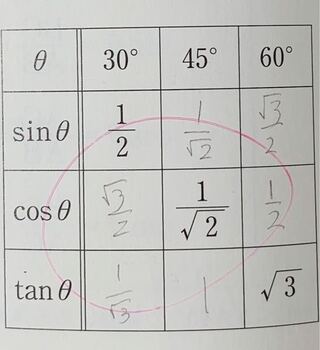 θ 30° 45° 60°
sinθ 1/2 1/√2 √3/2
cosθ √3/2 1/√2 1/2
tanθ 1/√3 1 √3